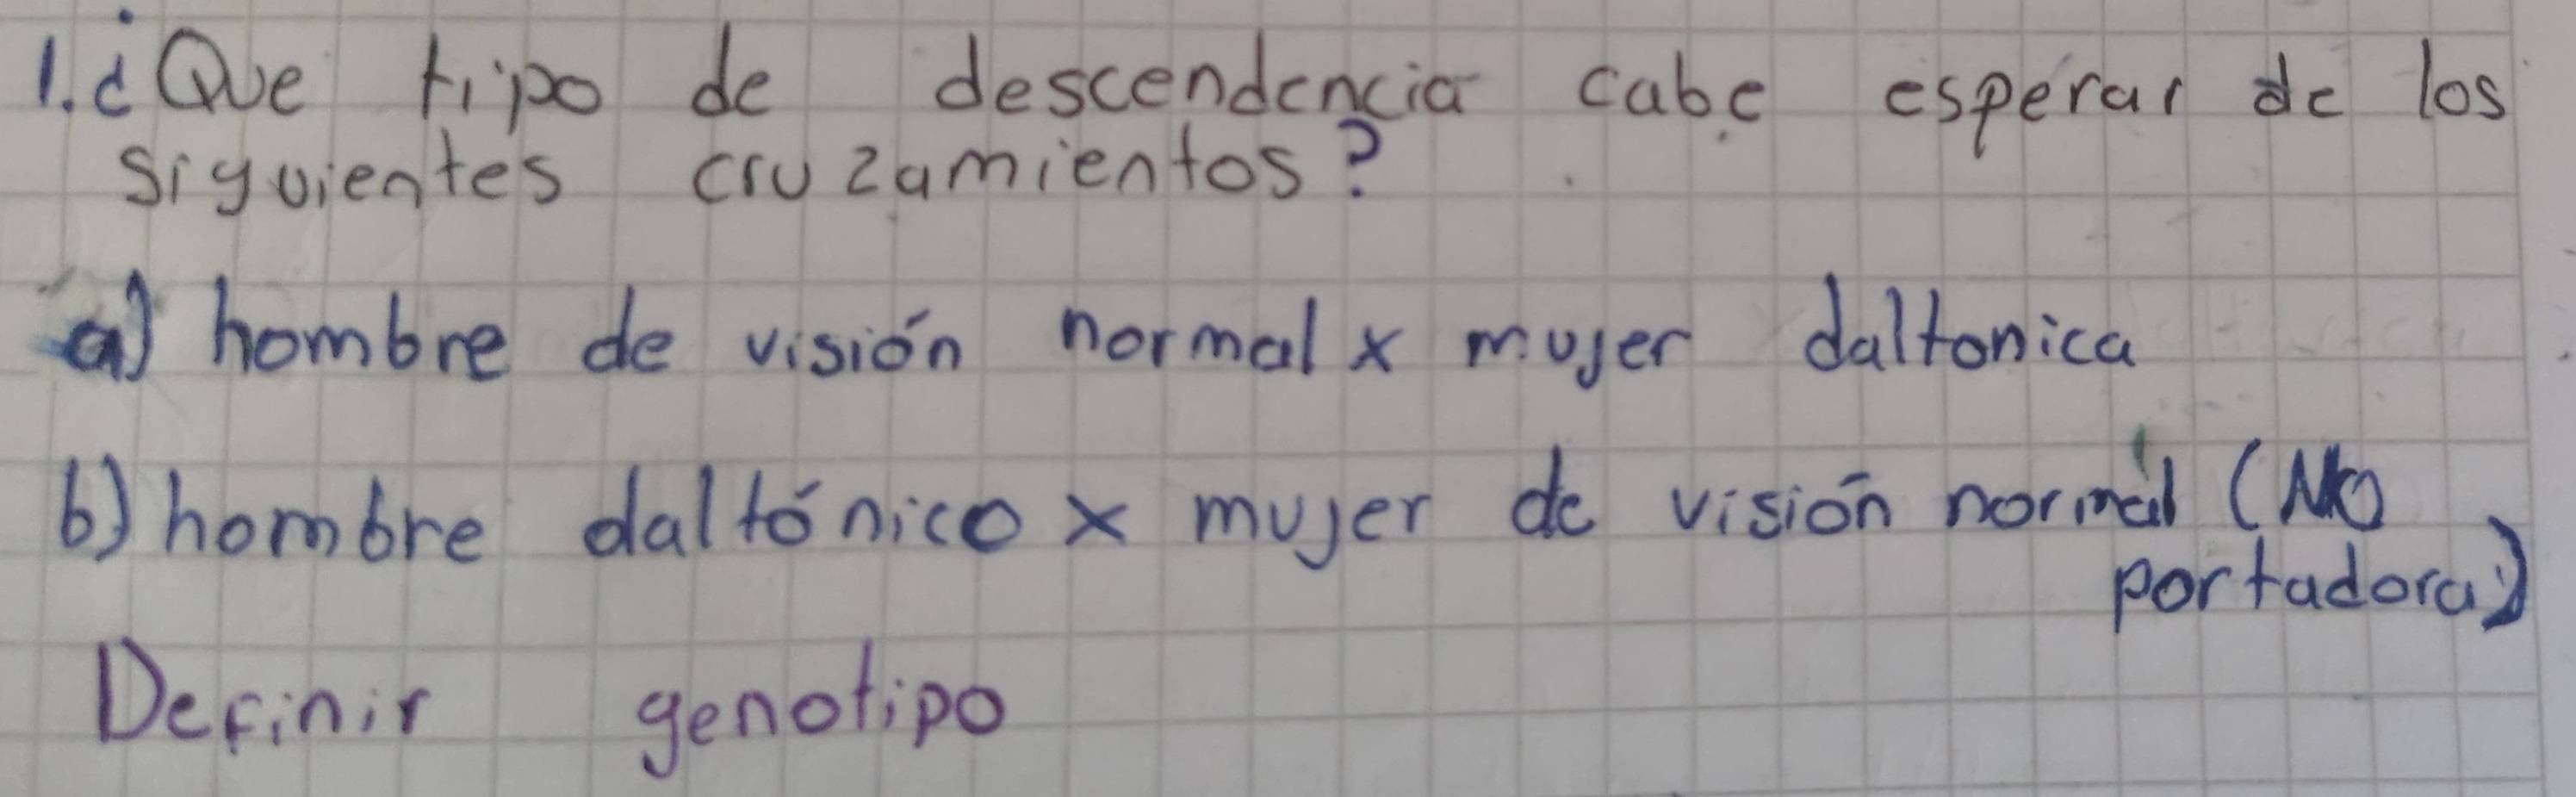 1. ¿Que tipo de descendencia cabe esperar de los
siguientes cruzamientos?
a) hombre de visión normal x mujer daltonica
b) hombre daltónico x mujer de visión normal (NO
portadora)
Definir genotipo